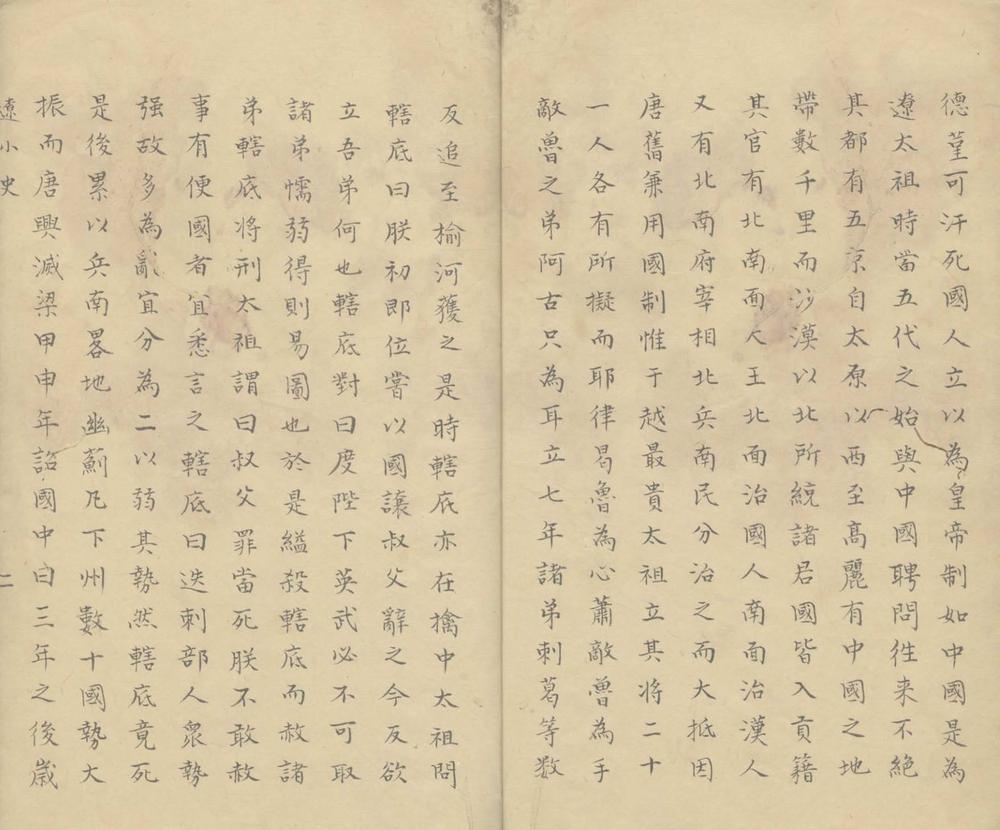 德菫可汗死國人立以為皇帝制如中國是為
遼太祖時當五代之始與中國聘問徃来不絶
其都有五京自太原以西至髙麗有中國之地
帶數千里而沙漠以北所統諸君國皆入貢籍
其官有北南面人王北面治國人南面治漢人
又有北南府宰相北兵南民分治之而大抵因
唐舊兼用國制惟于越最貴太祖立其将二十
一人各有所擬而耶律曷魯為心蕭敵魯為手
敵魯之弟阿古只為耳立七年諸弟刺葛等数
反追至榆河獲之是時轄底亦在擒中太祖問
轄底曰朕初即位嘗以國讓叔父辭之今反欲
立吾弟何也轄底對曰度陛下英武必不可取
諸弟懦弱得則易圖也於是縊殺轄底而赦諸
弟轄底将刑太祖謂曰叔父罪當死朕不敢赦
事有便國者宜悉言之轄底曰迭刺部人衆勢
强故多為亂宜分為二以弱其勢然轄底竟死
是後累以兵南畧地幽薊凡下州數十國勢大
振而唐興滅梁甲申年詔國中曰三年之後歲
遼小史 二